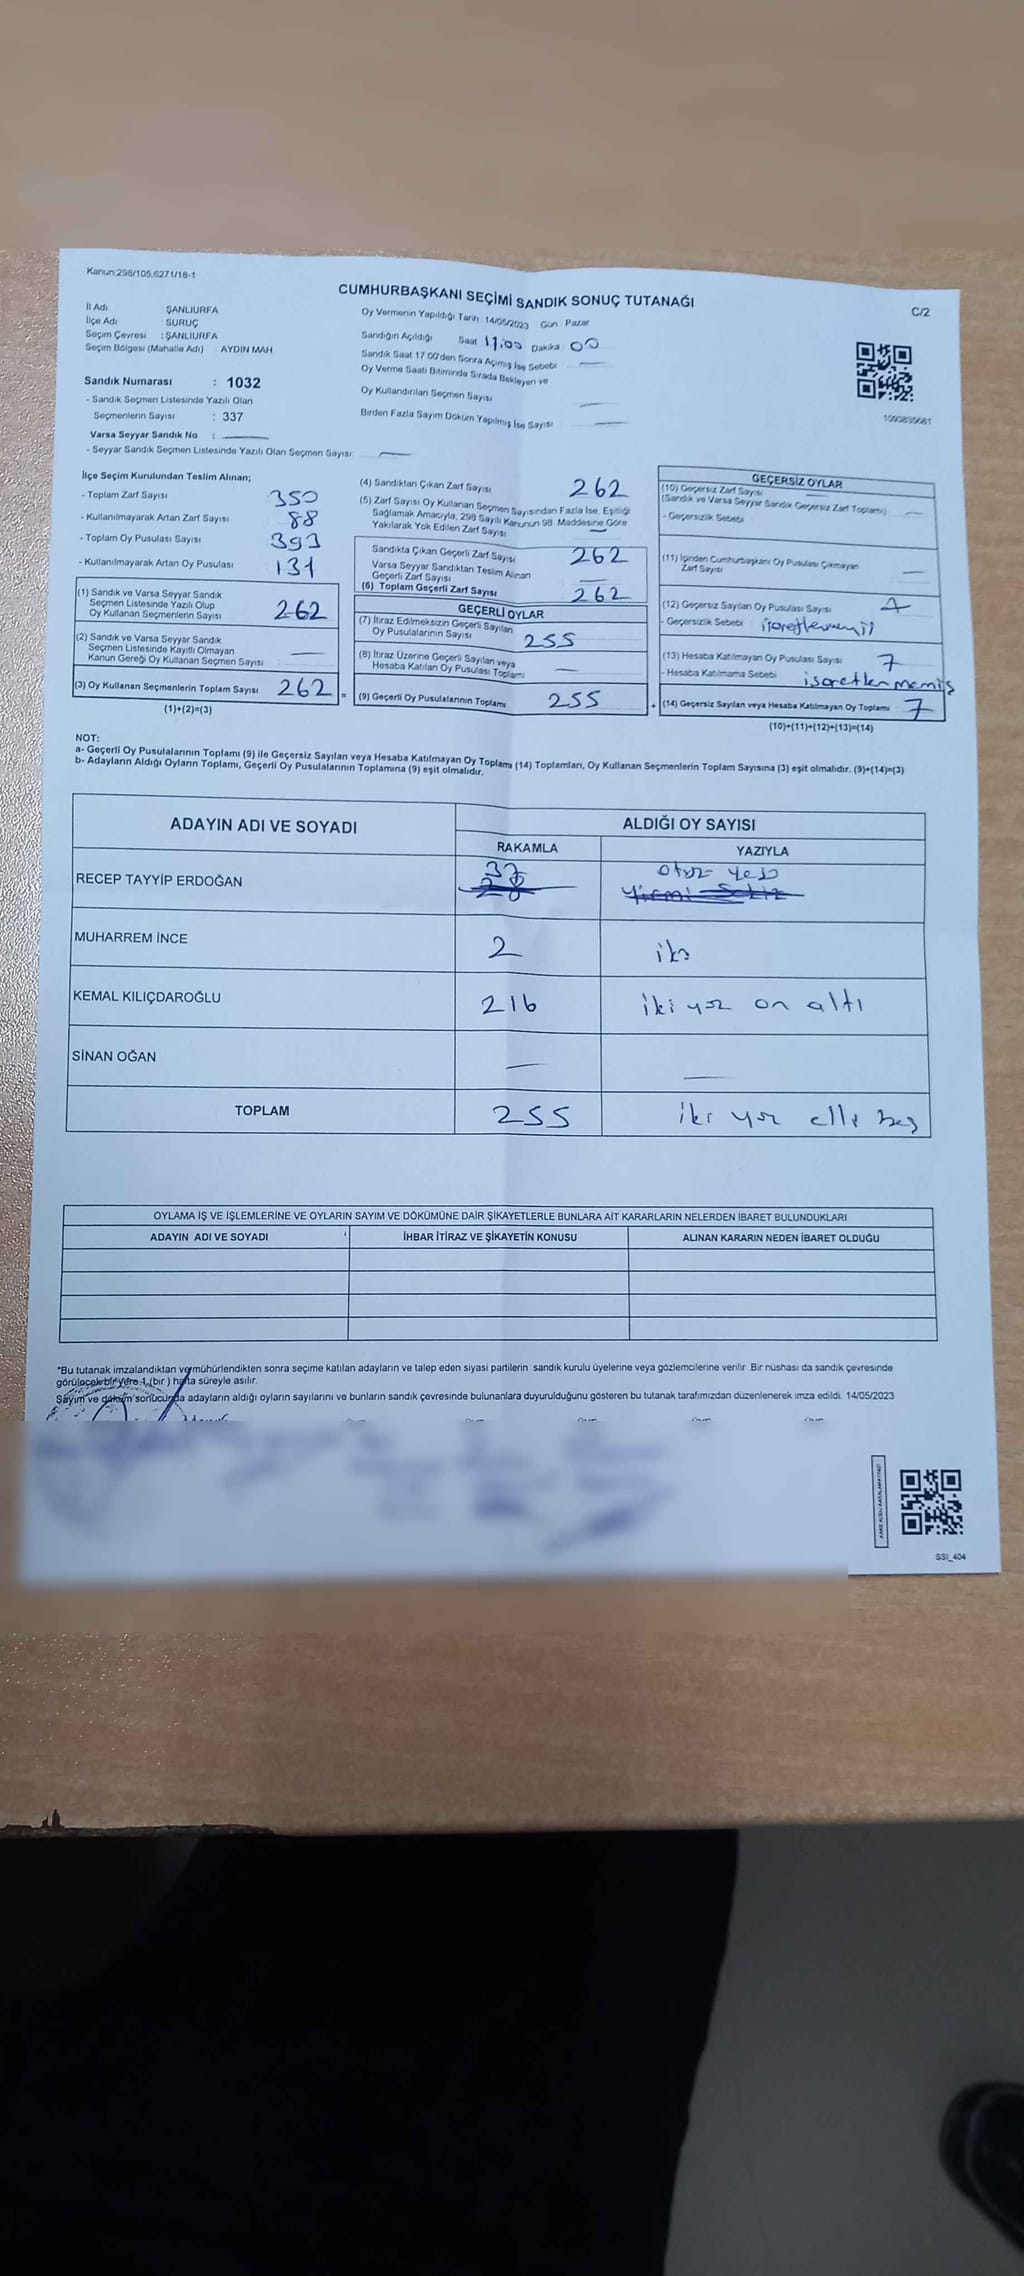 Kanun:298/105.6271/18-1
CUMHURBAŞKANI SEÇİMİ SANDIK SONUÇ TUTANAĞI
C/2
İl Adı : ŞANLIURFA
İlçe Adı : SURUÇ
Seçim Çevresi : ŞANLIURFA
Seçim Bölgesi (Mahalle Adı) AYDIN MAH
Sandık Numarası : 1032
- Sandık Seçmen Listesinde Yazılı Olan
Seçmenlerin Sayısı : 337
Varsa Seyyar Sandık No :
- Seyyar Sandık Seçmen Listesinde Yazılı Olan Seçmen Sayısı
Oy Vermenin Yapıldığı Tarih 14/05/2023 Gün : Pazar
Sandığın Açıldığı Saat 17.00 Dakika 00
Sandık Saat 17:00'den Sonra Açımış İse Sebebi
Oy Verme Saati Bitiminde Sırada Bekleyen ve
Oy Kullandırılan Seçmen Sayısı
Birden Fazla Sayım Döküm Yapılmış İse Sayısı
İlçe Seçim Kurulundan Teslim Alınan;
- Toplam Zarf Sayısı 350
- Kullanılmayarak Artan Zarf Sayısı 88
- Toplam Oy Pusulası Sayısı 393
- Kullanılmayarak Artan Oy Pusulası 131
(1) Sandık ve Varsa Seyyar Sandık
Seçmen Listesinde Yazılı Olup
Oy Kullanan Seçmenlerin Sayısı 262
(2) Sandık ve Varsa Seyyar Sandık
Seçmen Listesinde Kayıtlı Olmayan
Kanun Gereği Oy Kullanan Seçmen Sayısı
(3) Oy Kullanan Seçmenlerin Toplam Sayısı 262 =
(1)+(2)=(3)
(4) Sandıktan Çıkan Zarf Sayısı 262
(5) Zarf Sayısı Oy Kullanan Seçmen Sayısından Fazla İse, Eşitliği
Sağlamak Amacıyla, 298 Sayılı Kanunun 98. Maddesine Göre
Yakılarak Yok Edilen Zarf Sayısı
Sandıkta Çıkan Geçerli Zarf Sayısı 262
Varsa Seyyar Sandıktan Teslim Alınan
Geçerli Zarf Sayısı
(6) Toplam Geçerli Zarf Sayısı 262
GEÇERLİ OYLAR
(7) İtiraz Edilmeksizin Geçerli Sayılan
Oy Pusulalarının Sayısı 255
(8) İtiraz Üzerine Geçerli Sayılan veya
Hesaba Katılan Oy Pusulası Toplamı
(9) Geçerli Oy Pusulalarının Toplamı 255 +
GEÇERSİZ OYLAR
(10) Geçersiz Zarf Sayısı
(Sandık ve Varsa Seyyar Sandık Geçersiz Zarf Toplamı)
- Geçersizlik Sebebi
(11) İçinden Cumhurbaşkanı Oy Pusulası Çıkmayan
Zarf Sayısı
(12) Geçersiz Sayılan Oy Pusulası Sayısı 7
- Geçersizlik Sebebi
(13) Hesaba Katılmayan Oy Pusulası Sayısı 7
- Hesaba Katılmama Sebebi isoretlenmemiş
(14) Geçersiz Sayılan veya Hesaba Katılmayan Oy Toplamı 7
(10)+(11)+(12)+(13)=(14)
NOT:
a- Geçerli Oy Pusulalarının Toplamı (9) ile Geçersiz Sayılan veya Hesaba Katılmayan Oy Toplamı (14) Toplamları, Oy Kullanan Seçmenlerin Toplam Sayısına (3) eşit olmalıdır. (9)+(14)=(3)
b- Adayların Aldığı Oyların Toplamı, Geçerli Oy Pusulalarının Toplamına (9) eşit olmalıdır.
ADAYIN ADI VE SOYADI ALDIĞI OY SAYISI
RAKAMLA YAZIYLA
RECEP TAYYİP ERDOĞAN 37 otuz yedi
28 yirmi sekiz
MUHARREM İNCE 2 iki
KEMAL KILIÇDAROĞLU 216 iki yüz on altı
SİNAN OĞAN
TOPLAM 255 iki yüz elli beş
OYLAMA İŞ VE İŞLEMLERİNE VE OYLARIN SAYIM VE DÖKÜMÜNE DAİR ŞİKAYETLERLE BUNLARA AİT KARARLARIN NELERDEN İBARET BULUNDUKLARI
ADAYIN ADI VE SOYADI İHBAR İTİRAZ VE ŞİKAYETİN KONUSU ALINAN KARARIN NEDEN İBARET OLDUĞU
*Bu tutanak imzalandıktan ve mühürlendikten sonra seçime katılan adayların ve talep eden siyasi partilerin sandık kurulu üyelerine veya gözlemcilerine verilir. Bir nüshası da sandık çevresinde
görülecek bir yere 1 (bir ) hafta süreyle asılır.
Sayım ve döküm sonucunda adayların aldığı oyların sayılarını ve bunların sandık çevresinde bulunanlara duyurulduğunu gösteren bu tutanak tarafımızdan düzenlenerek imza edildi. 14/05/2023
SSI_404